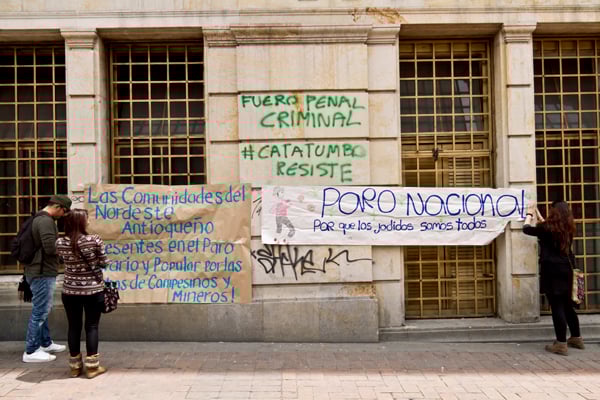 FUERO PENAL
CRIMINAL
#CATATUMBO
RESISTE
Las Comunidades del
Nordeste
Antioqueño
en el Paro
y Popular por las
de Campesinos y
Mineros!
PARO NACIONAL!
POR QUE los jodidos somos todos